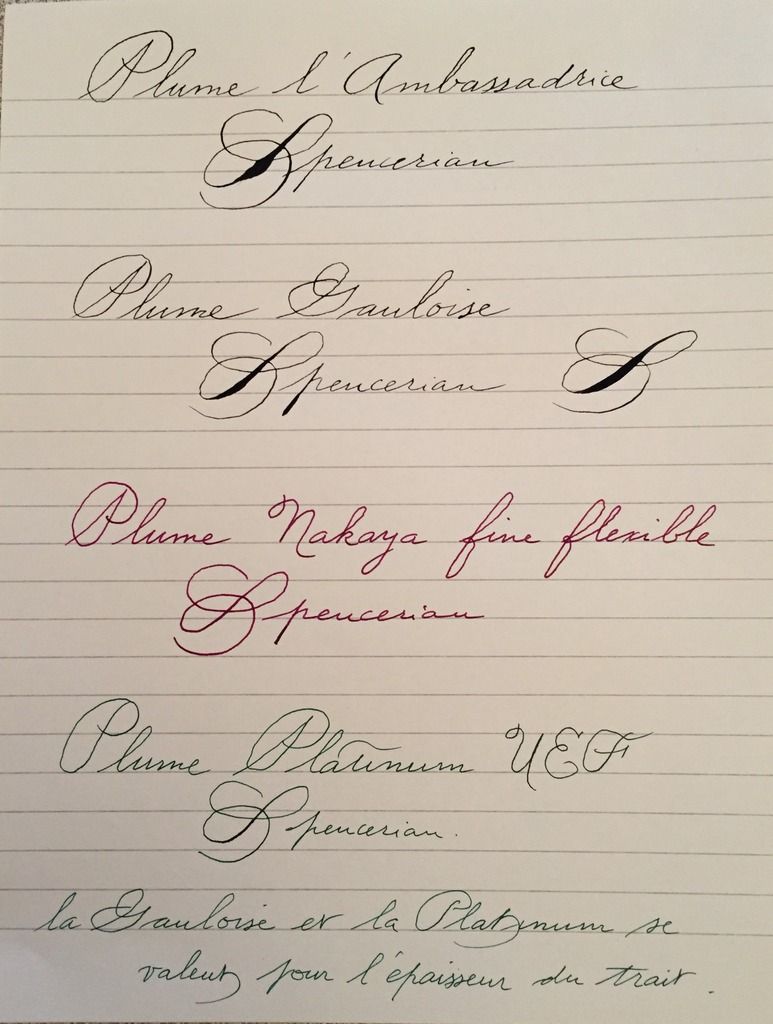 Plume l'Ambassadrice
Spencerian
Plume Gauloise
Spencerian S
Plume Nakaya fine flexible
Spencerian
Plume Platinum UEF
Spencerian.
la Gauloise et la Platinum se
valent pour l'épaisseur du trait.